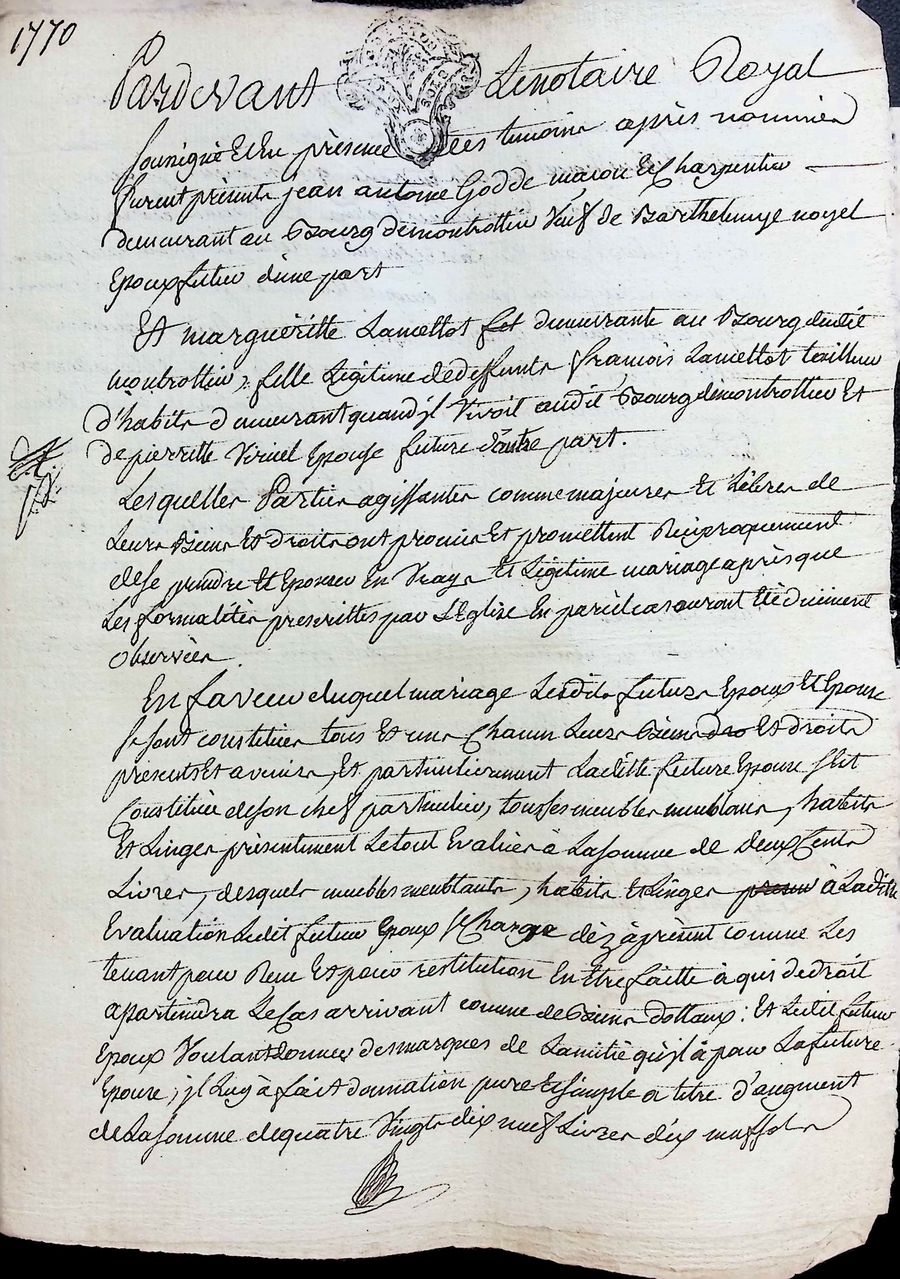 1770
Pardevant Le notaire Royal
soussigné Et En présence des témoins après nommés
furent présents jean antoine Godde maçon Et Charpentier
demeurant au Bourg de montrottier Veuf de Barthelemye noyel
Epoux futur d'une part
Et margueritte Lamettot fet demeurante au Bourg dudit
montrottier, fille Légitime de deffunts francois Lamettot tailleur
d'habits demeurant quand jl Vivoit audit Bourg de montrottier Et
de pierrette Viricel Epouse future d'autre part.
Lesquelles Parties agissantes comme majeures Et Libres de
Leurs Biens Et droits ont promis Et promettent Réciproquement
de se prendre Et Epouser En Vray Et Légitime mariage après que
Les formalités prescrittes par L'Eglise En pareil cas auront été düement
observées.
En faveur duquel mariage Lesdits futurs Epoux Et Epouse
se sont constitués tous Et uns Chacun Leurs Biens dro Et droits
présents Et avenirs, Et particulierement Laditte future Epouse s'est
Constituée de son chef particulier, tous ses meubles meublans, habits
Et Linges présentement Le tout Evalués à La somme de deux Cents
Livres, desquels meubles meublants, habits Et Linges à Laditte
Evaluation Ledit futur Epoux se Charge dèz à présent comme Les
tenant pour Reçu Et pour restitution En Etre faitte à qui de droit
apartiendra Le Cas arrivant comme de Biens dottaux: Et Ledit futur
Epoux Voulant donner des marques de Lamitié qu'jl à pour La future
Epouse, jl Luy à fait donnation pure Et simple a titre d'augment
de La somme de quatre Vingts dix neuf Livres dix neuf sols